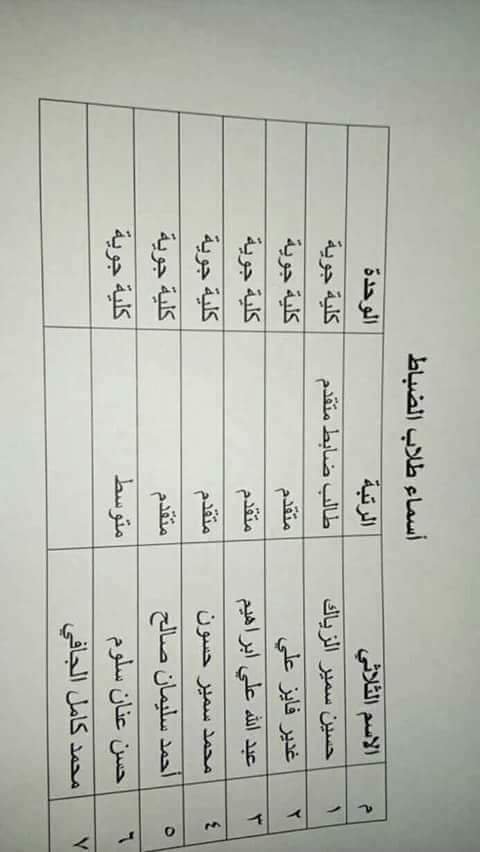 أسماء طلاب الضباط
م الاسم الثلاثي الرتبة الوحدة
١ حسين سمير الزياك طالب ضابط متقدم كلية جوية
٢ غدير فايز علي متقدم كلية جوية
٣ عبد الله علي ابراهيم متقدم كلية جوية
٤ محمد سمير حسون متقدم كلية جوية
٥ أحمد سليمان صالح متقدم كلية جوية
٦ حسن عنان سلوم متوسط كلية جوية
٧ محمد كامل الجافي